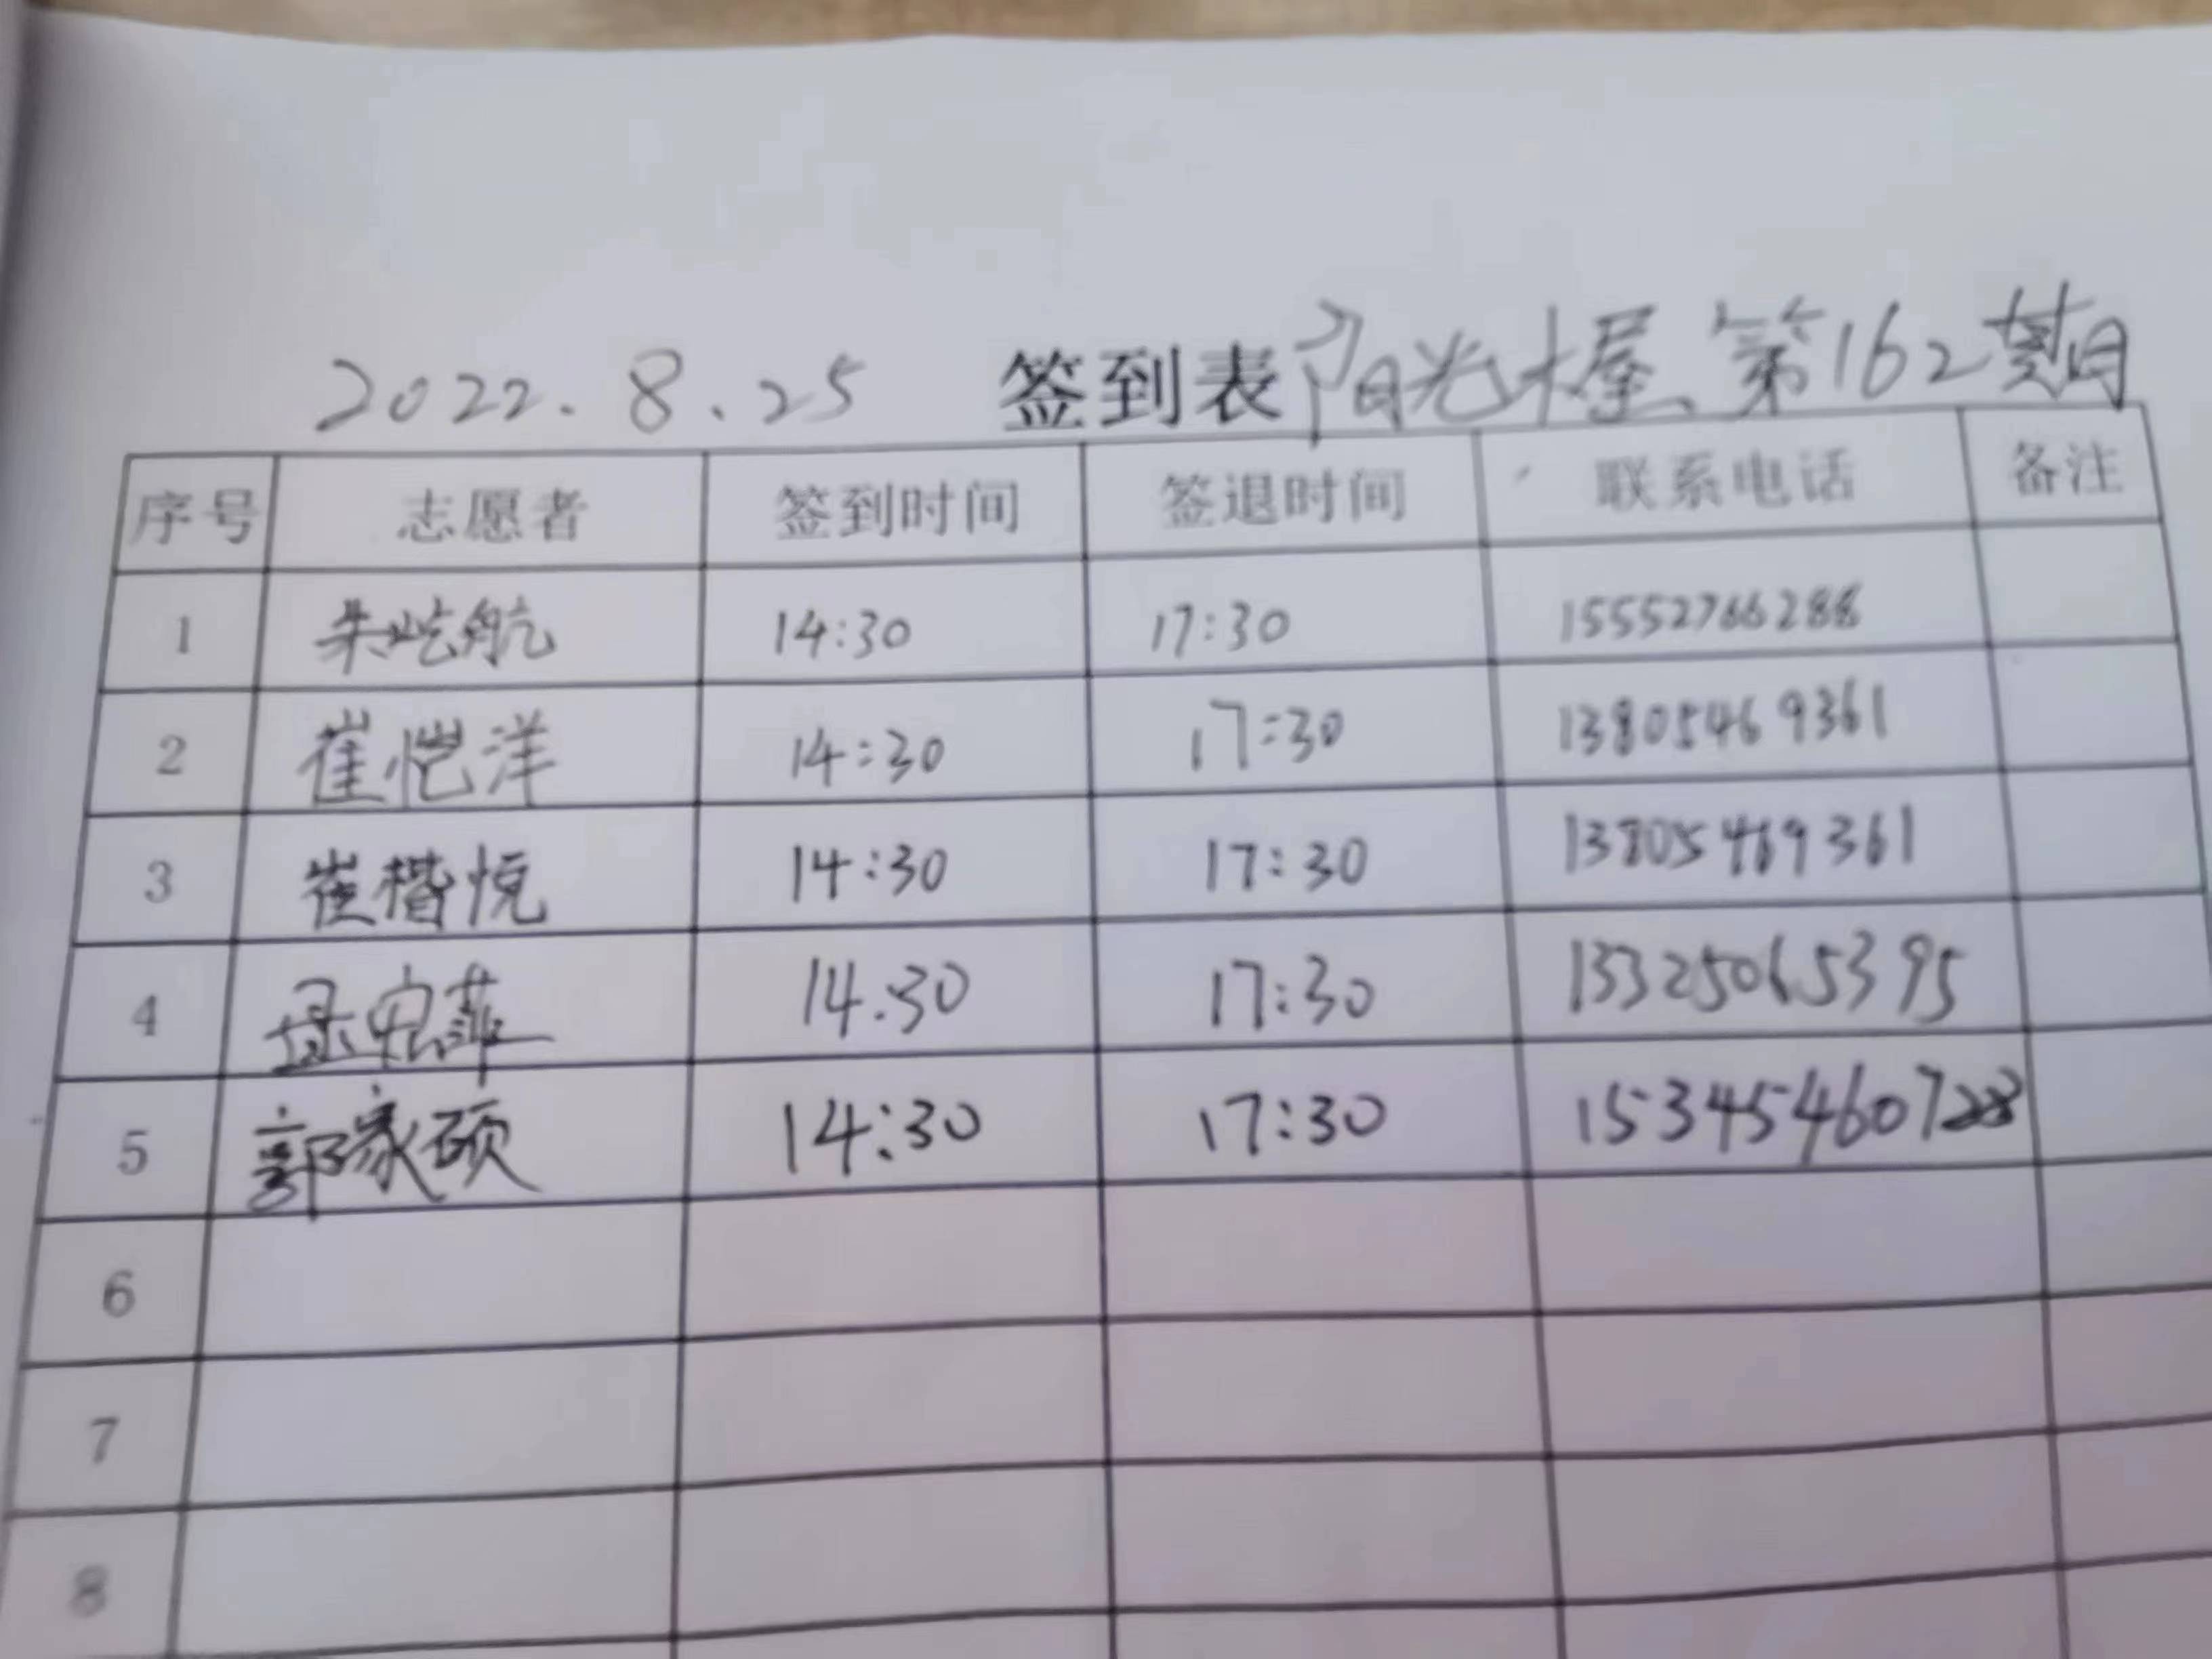 2022.8.25 签到表 阳光木屋、第162期
序号 志愿者 签到时间 签退时间 联系电话 备注
1 朱屹航 14:30 17:30 15552766288
2 崔恺洋 14:30 17:30 13805469361
3 崔楷悦 14:30 17:30 13805469361
4 14.30 17:30 13325065395
5 郭家硕 14:30 17:30 15345460728
6
7
8